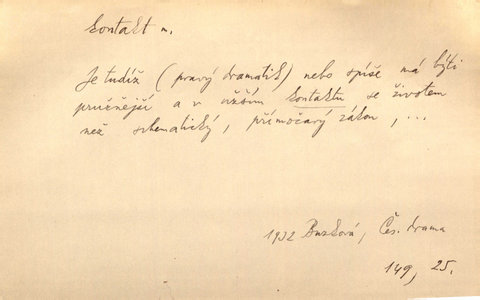 kontakt m.
Je tudíž (pravý dramatik) nebo spíše má býti
pružnější a v užším kontaktu se životem
než schematický, přímočarý zákon, ...
1932 Buzková, Čes. drama
149, 25.